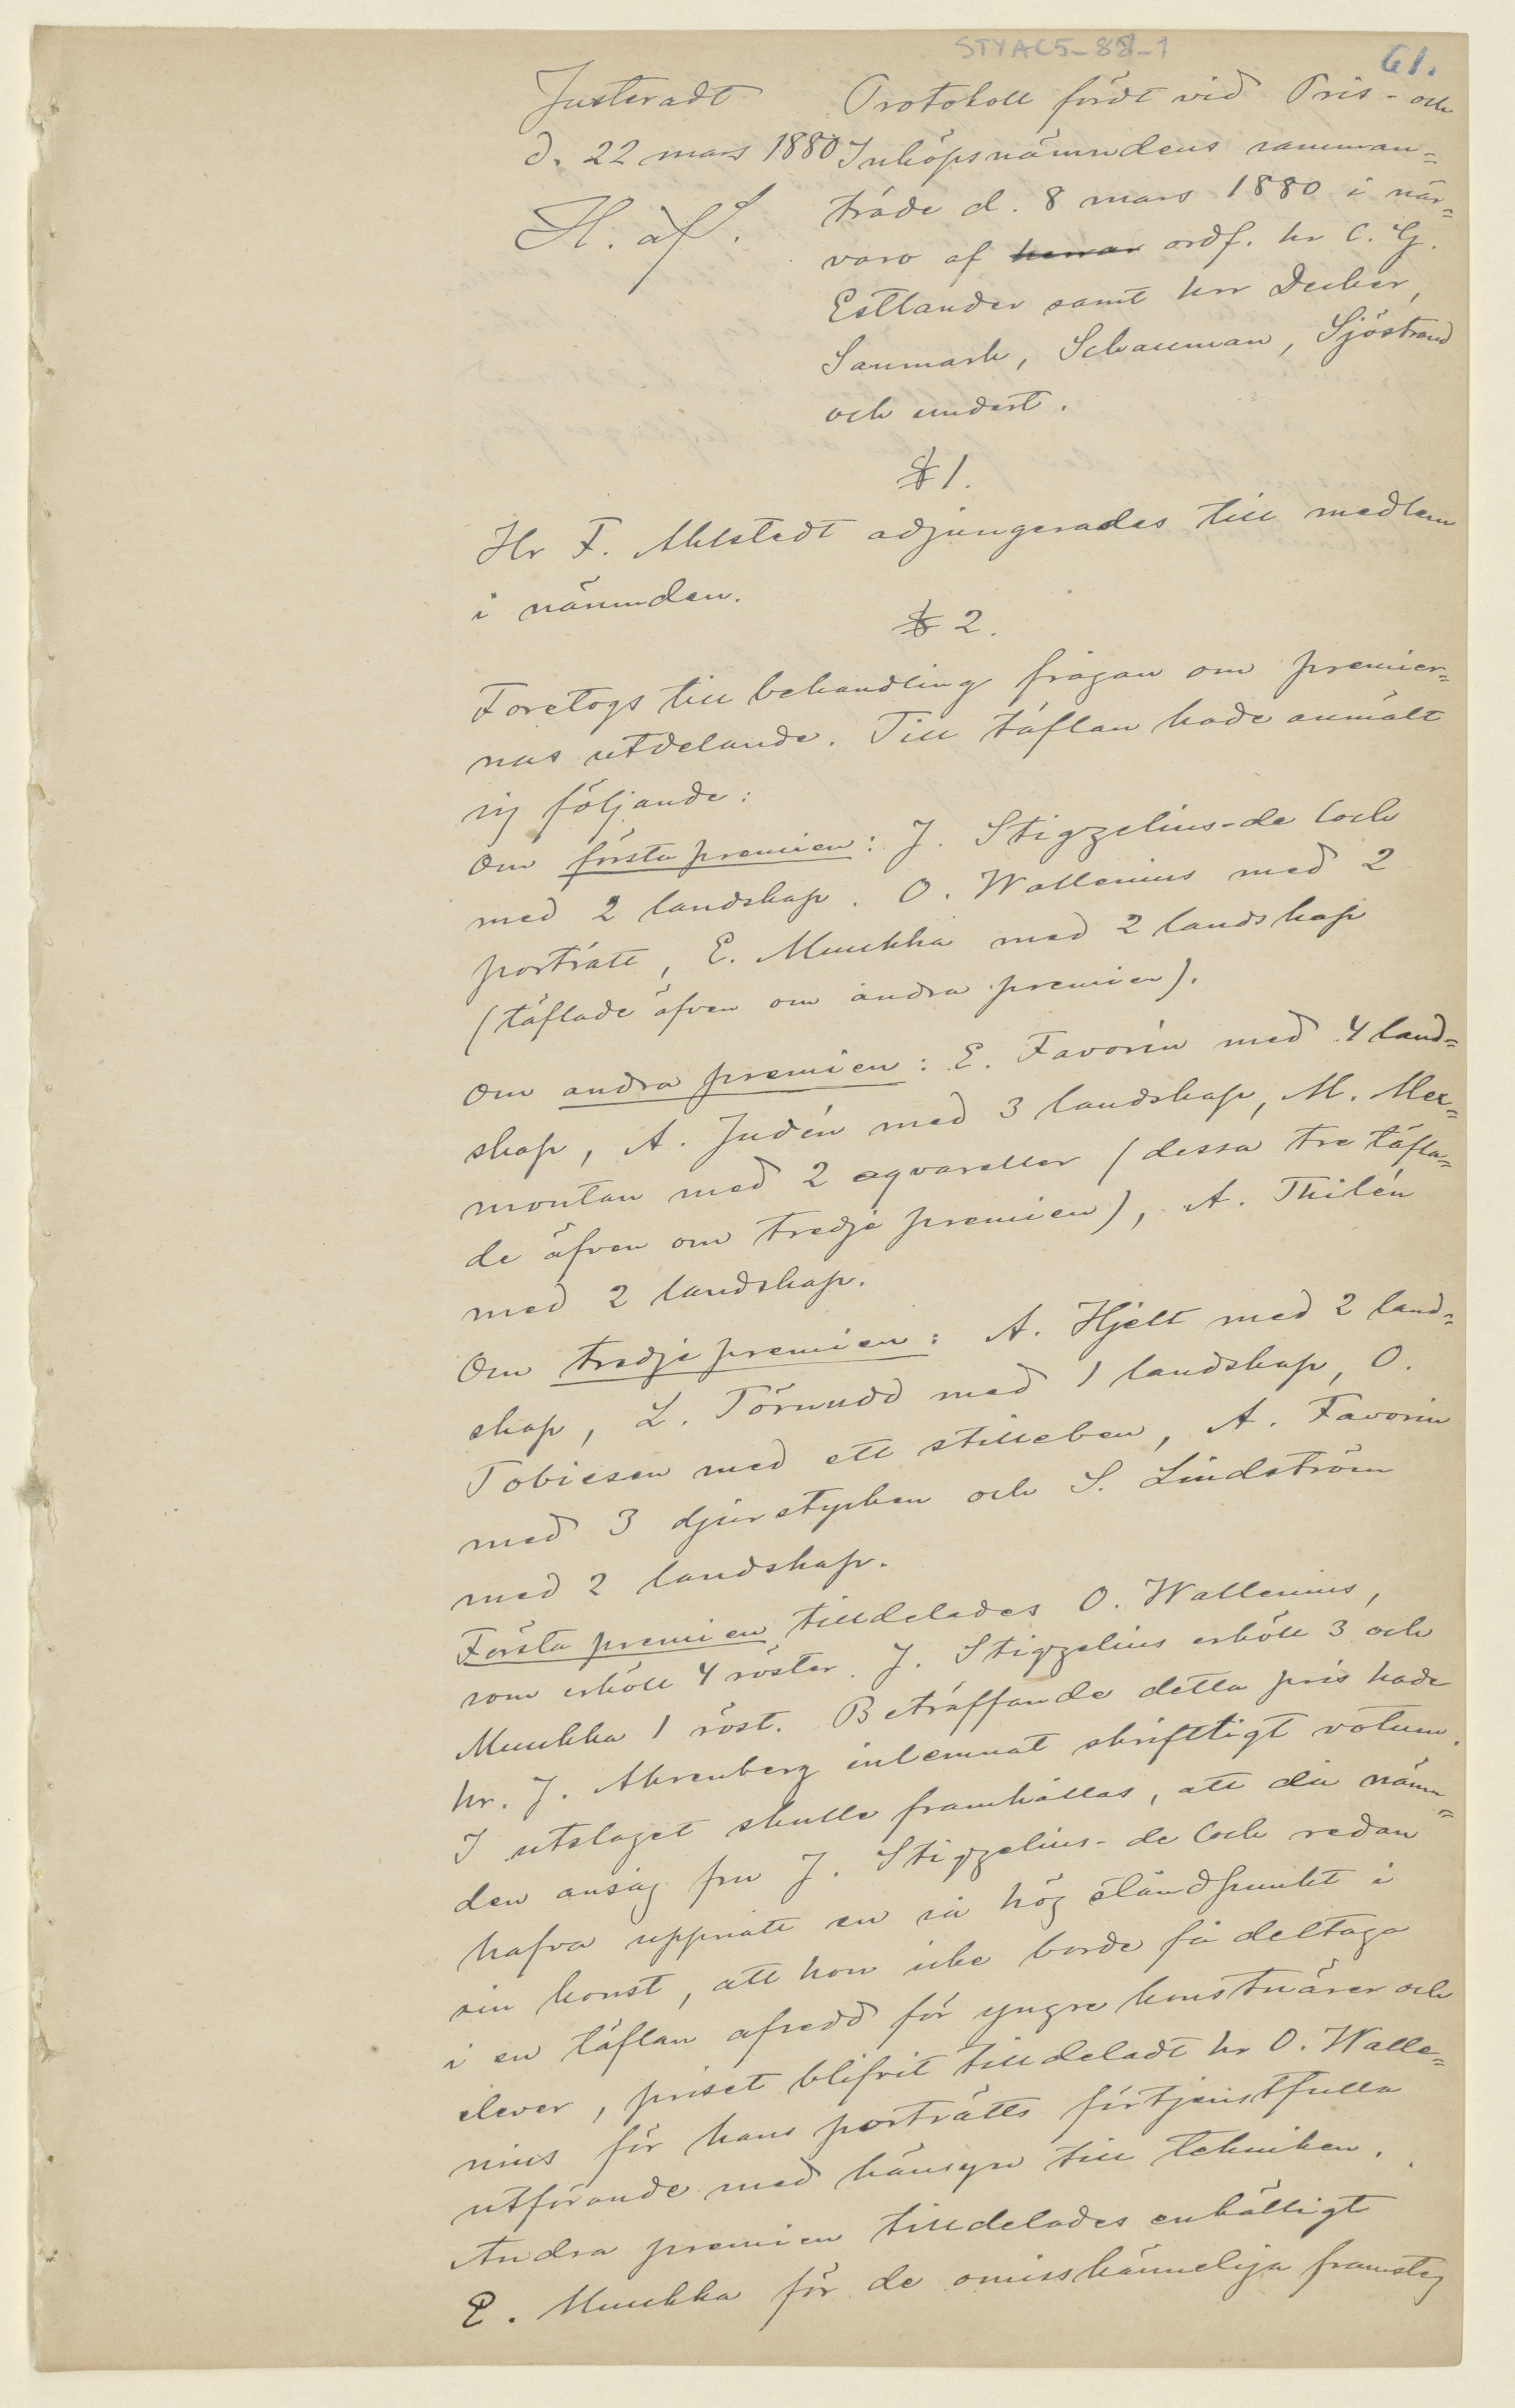 STYAC5-88-1
61.
Justeradt
d. 22 mars 1880
H. af S.
Protokoll fördt vid Pris- och
Inköpsnämndens samman=
träde d. 8 mars 1880 i när=
varo af herrar ordf. hr C. G.
Estlander samt hrr Decker,
Sanmark, Schauman, Sjöstrand
och undert.
§ 1.
Hr F. Ahlstedt adjungerades till medlem
i nämnden.
§ 2.
Företogs till behandling frågan om premier=
nas utdelande. Till täflan hade anmält
sig följande:
Om första premien: J. Stigzelius-de Cock
med 2 landskap. O. Wallenius med 2
porträtt, E. Muukka med 2 landskap
(täflade äfven om andra premien).
Om andra premien: E. Favorin med 4 land=
skap, A. Judén med 3 landskap, M. Mex=
montan med 2 aqvareller (dessa tre täfla=
de äfven om tredje premien), A. Thilén
med 2 landskap.
Om tredje premien: A. Hjelt med 2 land=
skap, L. Törnudd med 1 landskap, O.
Tobiesen med ett stilleben, A. Favorin
med 3 djurstycken och S. Lindström
med 2 landskap.
Första premien tilldelades O. Wallenius,
som erhöll 4 röster. J. Stigzelius erhöll 3 och
Muukka 1 röst. Beträffande detta pris hade
hr. J. Ahrenberg inlemnat skriftligt votum.
I utslaget skulle framhållas, att då nämn=
den ansåg fru J. Stigzelius-de Cock redan
hafva uppnått en så hög ståndpunkt i
sin konst, att hon icke borde få deltaga
i en täflan afsedd för yngre konstnärer och
elever, priset blifvit tilldeladt hr O. Walle=
nius för hans porträtts förtjenstfulla
utförande med hänsyn till tekniken.
Andra premien tilldelades enhälligt
E. Muukka för de omisskänneliga framsteg